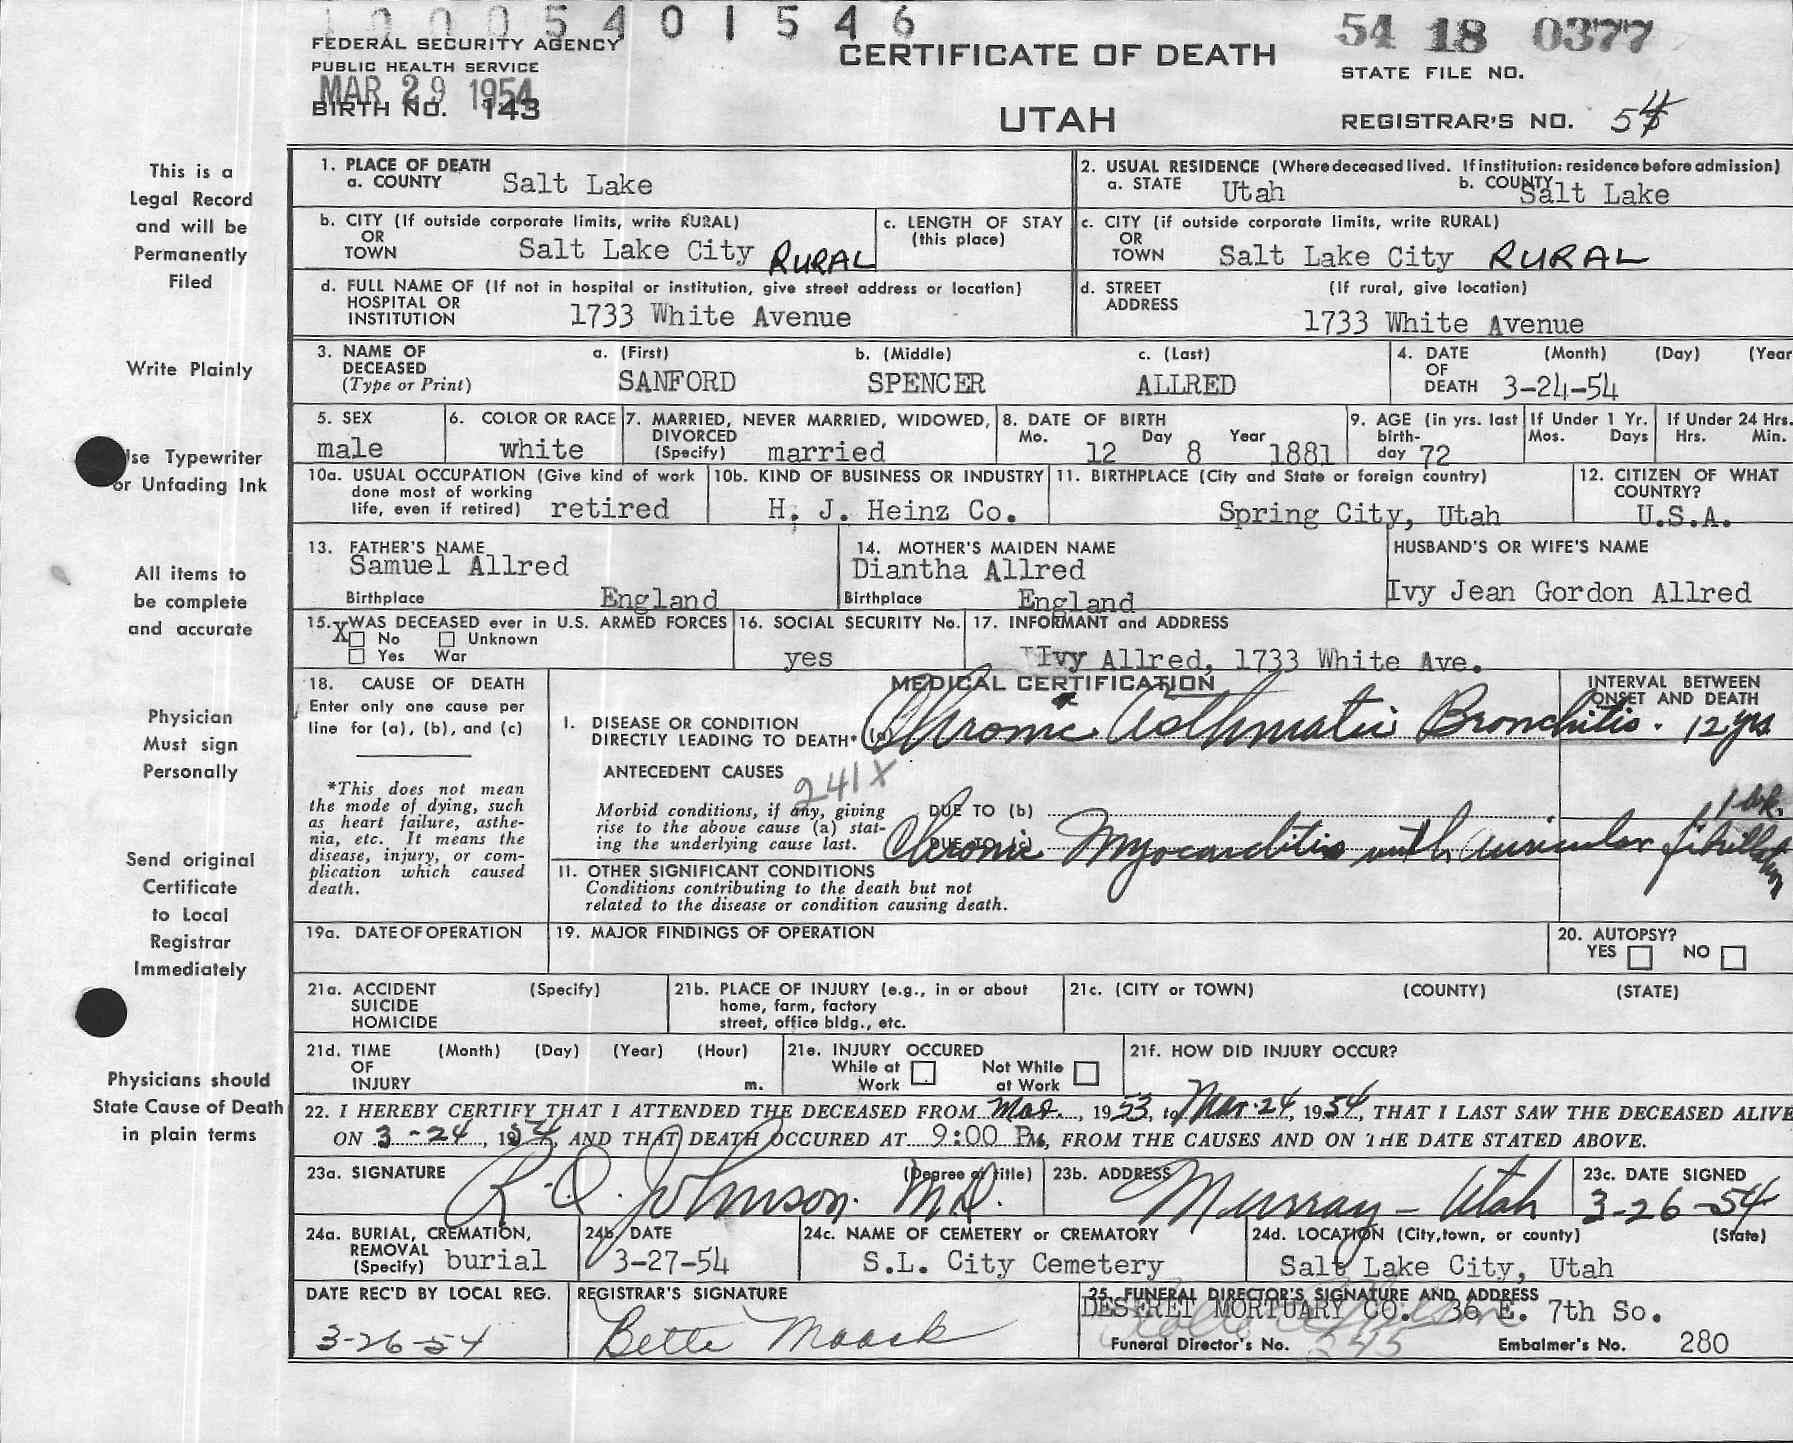 1000540 1546
54 18 0377
FEDERAL SECURITY AGENCY
PUBLIC HEALTH SERVICE
MAR 29 1954
BIRTH NO. 143
CERTIFICATE OF DEATH
UTAH
STATE FILE NO.
REGISTRAR'S NO. 54
This is a
Legal Record
and will be
Permanently
Filed
Write Plainly
Use Typewriter
or Unfading Ink
All items to
be complete
and accurate
Physician
Must sign
Personally
Send original
Certificate
to Local
Registrar
Immediately
Physicians should
State Cause of Death
in plain terms
1. PLACE OF DEATH
a. COUNTY Salt Lake
2. USUAL RESIDENCE (Where deceased lived. If institution: residence before admission)
a. STATE Utah b. COUNTY Salt Lake
b. CITY (If outside corporate limits, write RURAL)
OR
TOWN Salt Lake City RURAL
c. LENGTH OF STAY
(this place)
c. CITY (if outside corporate limits, write RURAL)
OR
TOWN Salt Lake City RURAL
d. FULL NAME OF (If not in hospital or institution, give street address or location)
HOSPITAL OR
INSTITUTION 1733 White Avenue
d. STREET (If rural, give location)
ADDRESS
1733 White Avenue
3. NAME OF a. (First) b. (Middle) c. (Last)
DECEASED
(Type or Print) SANFORD SPENCER ALLRED
4. DATE (Month) (Day) (Year
OF
DEATH 3-24-54
5. SEX
male
6. COLOR OR RACE
white
7. MARRIED, NEVER MARRIED, WIDOWED,
DIVORCED
(Specify) married
8. DATE OF BIRTH
Mo. Day Year
12 8 1881
9. AGE (in yrs. last
birth-
day 72
If Under 1 Yr.
Mos. Days
If Under 24 Hrs.
Hrs. Min.
10a. USUAL OCCUPATION (Give kind of work
done most of working
life, even if retired) retired
10b. KIND OF BUSINESS OR INDUSTRY
H. J. Heinz Co.
11. BIRTHPLACE (City and State or foreign country)
Spring City, Utah
12. CITIZEN OF WHAT
COUNTRY?
U.S.A.
13. FATHER'S NAME
Samuel Allred
Birthplace England
14. MOTHER'S MAIDEN NAME
Diantha Allred
Birthplace England
HUSBAND'S OR WIFE'S NAME
Ivy Jean Gordon Allred
15. WAS DECEASED ever in U.S. ARMED FORCES
X No Unknown
Yes War
16. SOCIAL SECURITY No.
yes
17. INFORMANT and ADDRESS
Ivy Allred, 1733 White Ave.
18. CAUSE OF DEATH
Enter only one cause per
line for (a), (b), and (c)
*This does not mean
the mode of dying, such
as heart failure, asthe-
nia, etc. It means the
disease, injury, or com-
plication which caused
death.
MEDICAL CERTIFICATION
INTERVAL BETWEEN
ONSET AND DEATH
I. DISEASE OR CONDITION
DIRECTLY LEADING TO DEATH* (a) Chronic Asthmatic Bronchitis. 12 yrs
ANTECEDENT CAUSES
241X
Morbid conditions, if any, giving
rise to the above cause (a) stat-
ing the underlying cause last.
DUE TO (b)
1 wk.
DUE TO (c) Chronic Myocarditis with auricular fibrillation
11. OTHER SIGNIFICANT CONDITIONS
Conditions contributing to the death but not
related to the disease or condition causing death.
19a. DATE OF OPERATION
19. MAJOR FINDINGS OF OPERATION
20. AUTOPSY?
YES NO
21a. ACCIDENT (Specify)
SUICIDE
HOMICIDE
21b. PLACE OF INJURY (e.g., in or about
home, farm, factory
street, office bldg., etc.
21c. (CITY or TOWN) (COUNTY) (STATE)
21d. TIME (Month) (Day) (Year) (Hour)
OF
INJURY m.
21e. INJURY OCCURED
While at Not While
Work at Work
21f. HOW DID INJURY OCCUR?
22. I HEREBY CERTIFY THAT I ATTENDED THE DECEASED FROM Mar., 1953, to Mar. 24, 1954, THAT I LAST SAW THE DECEASED ALIVE
ON 3-24, 1954, AND THAT DEATH OCCURED AT 9:00 PM, FROM THE CAUSES AND ON THE DATE STATED ABOVE.
23a. SIGNATURE (Degree or title)
R. O. Johnson. M.D.
23b. ADDRESS
Murray - Utah
23c. DATE SIGNED
3-26-54
24a. BURIAL, CREMATION,
REMOVAL
(Specify) burial
24b. DATE
3-27-54
24c. NAME OF CEMETERY or CREMATORY
S.L. City Cemetery
24d. LOCATION (City, town, or county) (State)
Salt Lake City, Utah
DATE REC'D BY LOCAL REG.
3-26-54
REGISTRAR'S SIGNATURE
Bette Maack
25. FUNERAL DIRECTOR'S SIGNATURE AND ADDRESS
DESERET MORTUARY CO. 36 E. 7th So.
Funeral Director's No. 345
Embalmer's No. 280